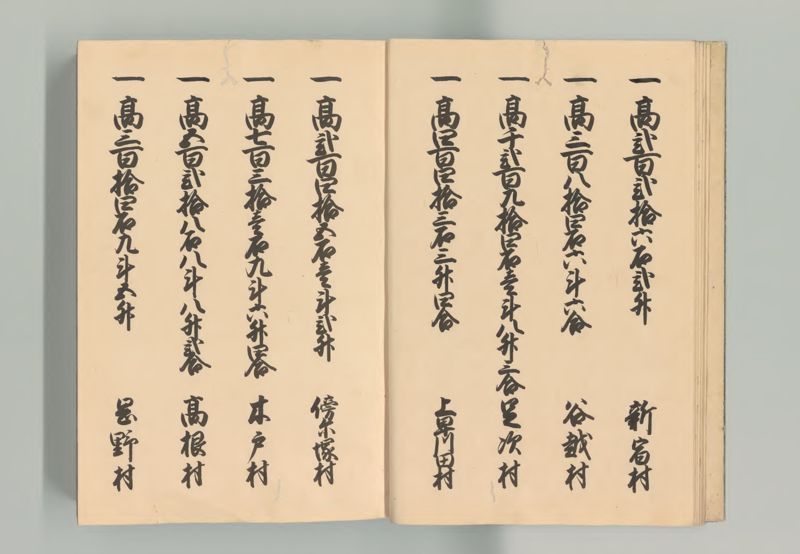 一高弐百弐拾六石弐升 新宿村
一高三百八拾四石六斗六合 谷越村
一高千弐百九拾四石壱斗八升三合 足次村
一高四百四拾三石三升四合 上早川田村
一高弐百四拾五石壱斗弐升 傍示塚村
一高七百三拾壱石九斗六升四合 木戸村
一高五百弐拾八石八斗八升弐合 高根村
一高三百拾四石九斗五升 岡野村